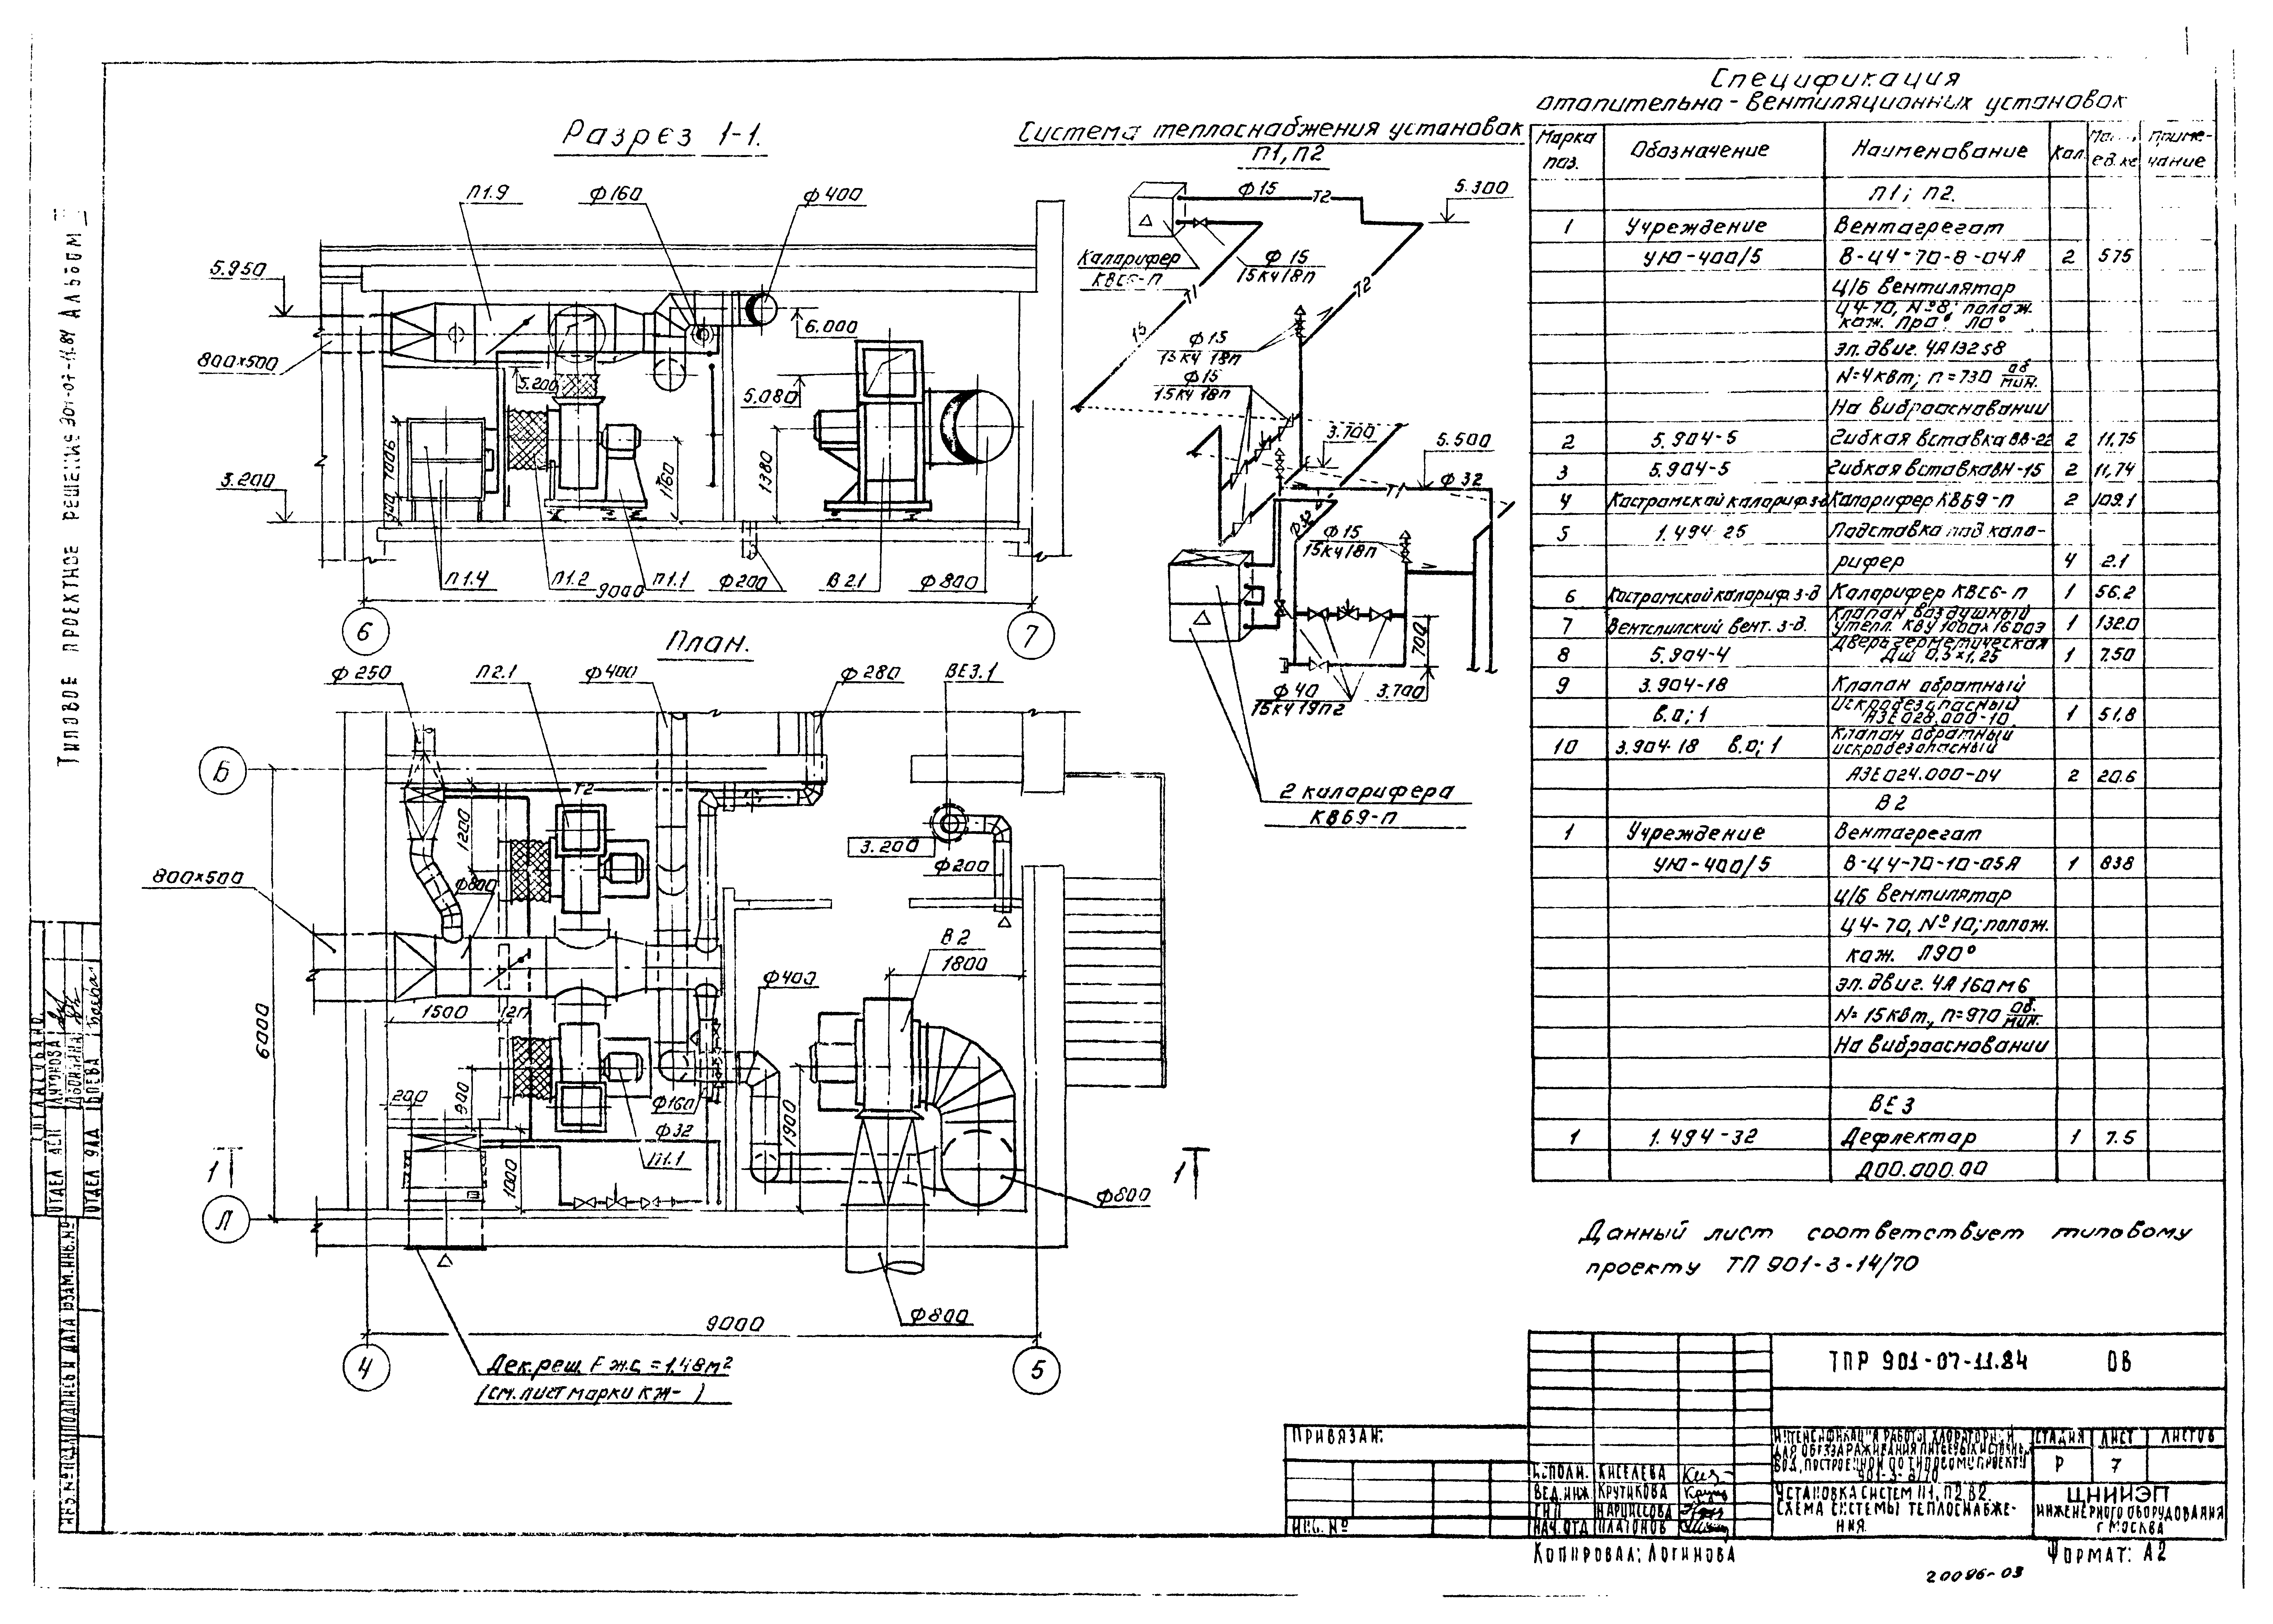 Типовое проектное решение 901-07-11.84 Альбом
Разрез 1-1.
П1.9
ф160
ф400
5.950
800×500
6.000
5.200
5.080
1006
3.200
1160
1380
П1.4
П1.2
П1.1
ф200
В 2.1
ф800
9000
6
7
План.
ф250
П2.1
ф400
ф280
ВЕ3.1
Б
Т2
1200
3.200
ф200
800×500
ф800
В2
1800
ф400
1500
6000
200
900
ф160
ф32
П1.1
1900
1000
1
1
Л
ф800
ф800
9000
4
5
Дек.реш. F ж.с. = 1,48м²
(см. лист марки КЖ- )
Система теплоснабжения установок
П1, П2
ф15
Т2
5.300
Калорифер
КВС6-П
ф15
15кч18п
Т1
Т2
15
ф15
15кч 18п
ф15
15кч 18п
3.700
5.500
Т1
ф32
ф32
ф15
15кч18п
700
ф40
15кч19п2
3.700
2 калорифера
КВБ9-П
Спецификация
отопительно-вентиляционных установок
Марка поз.
Обозначение
Наименование
Кол.
ед.кг
Приме-
чание
П1; П2.
1 Учреждение Вентагрегат
УЮ-400/5 В-Ц4-70-8-04А 2 575
Ц/Б вентилятор
Ц4-70, №8; полож.
кож. Пр0° Л0°
эл. двиг. 4А132S8
N=4квт; n=730 об/мин.
На виброосновании
2 5.904-5 Гибкая вставка ВВ-22 2 11,75
3 5.904-5 Гибкая вставка ВН-15 2 11,74
4 Костромской калориф.з-д Калорифер КВБ9-П 2 109.1
5 1.494-25 Подставка под кало-
рифер 4 2.1
6 Костромской калориф. з-д Калорифер КВС6-П 1 56.2
7 Вентспилский вент. з-д. Клапан воздушный
утепл. КВУ 1000×1600Э 1 132.0
8 5.904-4 Дверь герметическая
Дш 0,5×1,25 1 7.50
9 3.904-18 Клапан обратный
в.0; 1 Искробезопасный
АЗЕ028.000-10 1 51.8
10 3.904-18 в.0; 1 Клапан обратный
искробезопасный
АЗЕ024.000-04 2 20.6
В2
1 Учреждение Вентагрегат
УЮ-400/5 В-Ц4-70-10-05А 1 838
Ц/Б вентилятор
Ц4-70, №10; полож.
кож. Л90°
эл. двиг. 4А160М6
N=15квт., n=970 об./мин.
На виброосновании
ВЕ3
1 1.494-32 Дефлектор 1 7.5
Д00.000.00
Данный лист соответствует типовому
проекту ТП 901-3-14/70
ТПР 901-07-11.84 ОВ
Привязан:
Инв. №
Исполн. Киселева
Вед.инж. Крутикова
ГИП Нарциссова
Нач.отд Платонов
Интенсификация работы хлораторной
для обеззараживания питьевых и сточных
вод, построенной по типовому проекту
Стадия Лист Листов
Р 7
Установка систем П1, П2, В2.
Схема системы теплоснабже-
ния.
ЦНИИЭП
инженерного оборудования
г. Москва
Копировал: Логинова
Формат: А2
20096-03
Согласовано:
Инв.№подл. Подпись и дата Взам.инв.№